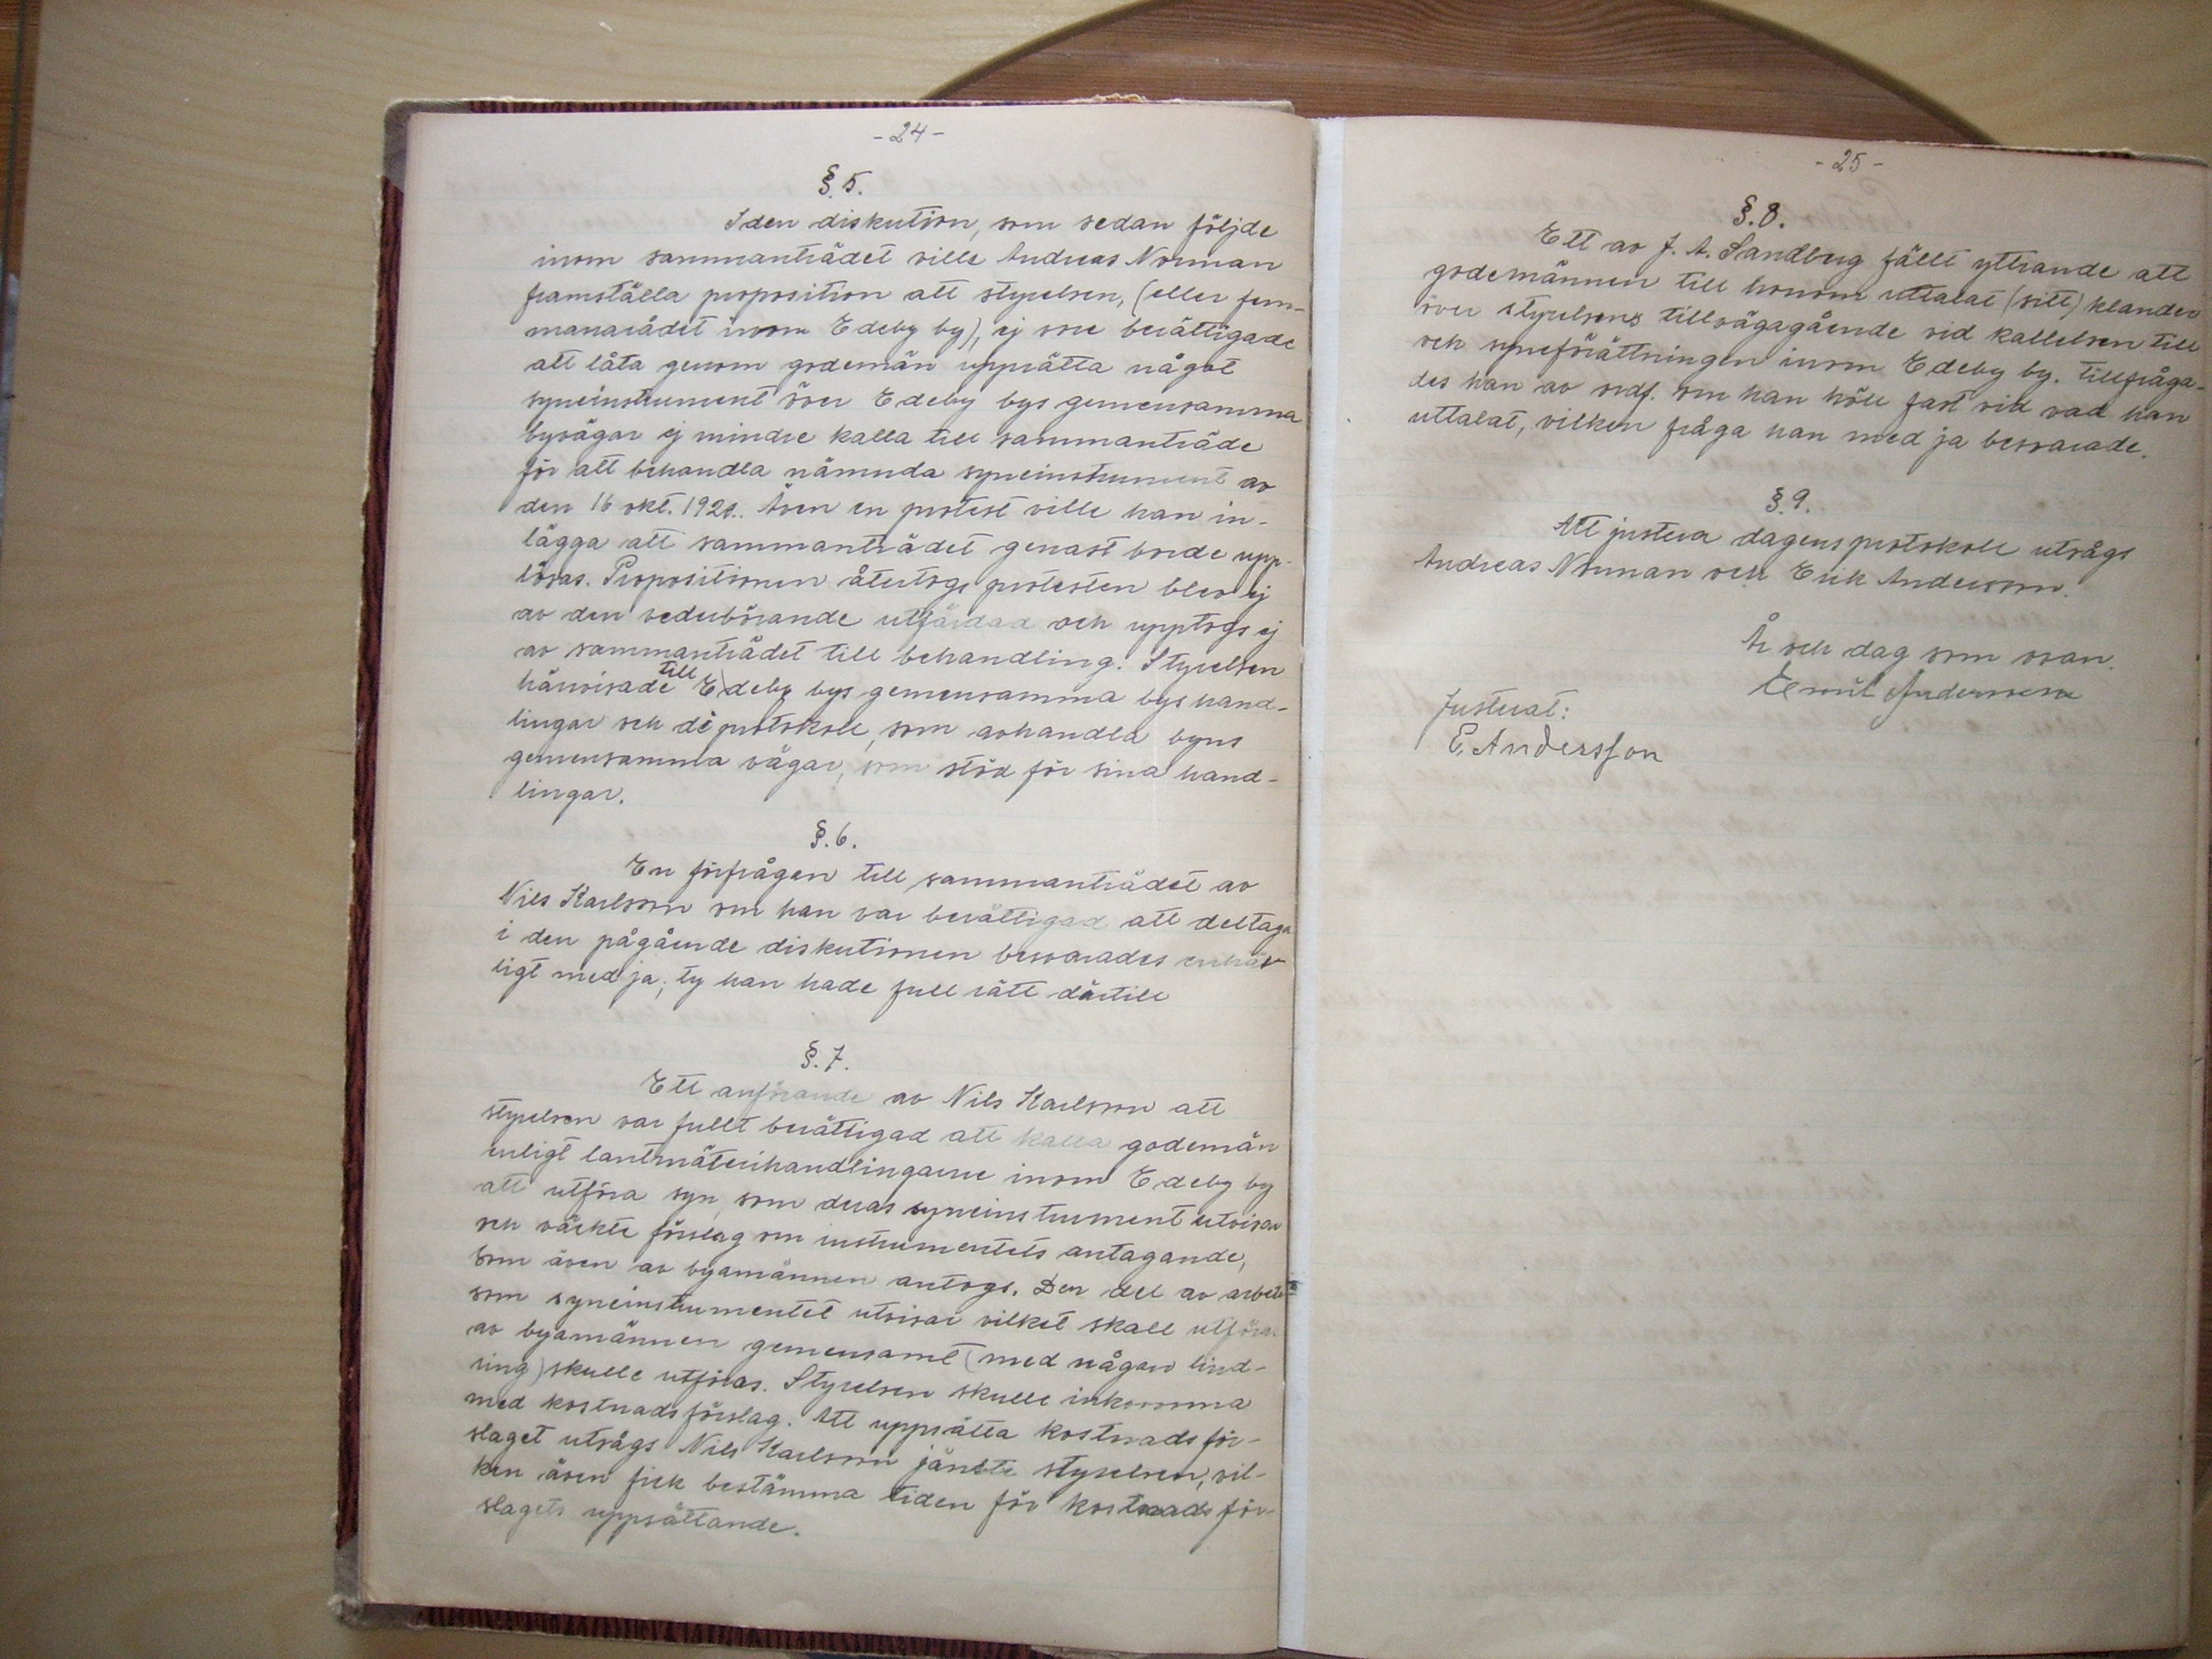 - 24 -
§. 5.
I den diskution, som sedan följde
inom sammanträdet ville Andreas Norman
framställa proposition att styrelsen, (eller fem-
manarådet inom Edeby by), ej vore berättigade
att låta genom godemän upprätta något
syneinstrument över Edeby bys gemensamma
byvägar ej mindre kalla till sammanträde
för att behandla nämnda syneinstrument av
den 16 okt. 1920.. Även en protest ville han in-
lägga att sammanträdet genast borde upp-
lösas. Propositionen återtogs protesten blev ej
av den vederbörande utfärdad och upptogs ej
av sammanträdet till behandling. Styrelsen
hänvisade till Edeby bys gemensamma bys hand-
lingar och de protokoll, som avhandla byns
gemensamma vägar, som stöd för sina hand-
lingar.
§. 6.
En förfrågan till sammanträdet av
Nils Karlsson om han var berättigad att deltaga
i den pågående diskutionen besvarades enhäl-
ligt med ja, ty han hade full rätt därtill
§. 7.
Ett anförande av Nils Karlsson att
styrelsen var fullt berättigad att kalla godemän
enligt lantmäterihandlingarne inom Edeby by
att utföra syn, som deras syneinstrument utvisar
och väckte förslag om instrumentets antagande,
som även av byamännen antogs. Den del av arbetet
som syneinstrumentet utvisar vilket skall utföras
av byamännen gemensamt (med någon lind-
ring) skulle utföras. Styrelsen skulle inkomma
med kostnadsförslag. Att upprätta kostnadsför-
slaget utsågs Nils Karlsson jämte styrelsen, vil-
ken även fick bestämma tiden för kostnadsför-
slagets upprättande.
- 25 -
§. 8.
Ett av J. A. Sandberg fällt yttrande att
godemännen till honom uttalat (sitt) klander
över styrelsens tillvägagående vid kallelsen till
och syneförättningen inom Edeby by. Tillfråga-
des han av ordf. om han höll fast vid vad han
uttalat, vilken fråga han med ja besvarade.
§. 9.
Att justera dagens protokoll utsågs
Andreas Norman och Erik Andersson.
År och dag som ovan.
Emil Andersson
Justerat:
E. Andersson